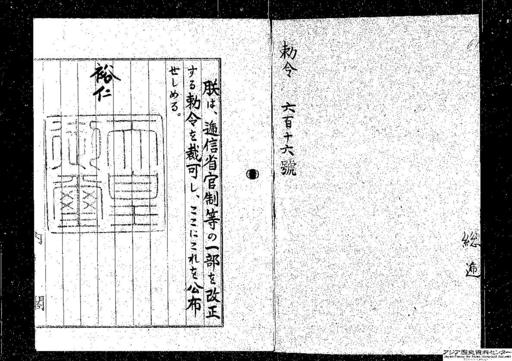 勅令 六百十六號
総逓
朕は、逓信省官制等の一部を改正
する勅令を裁可し、ここにこれを公布
せしめる。
裕仁
天皇御璽
内閣
アジア歴史資料センター